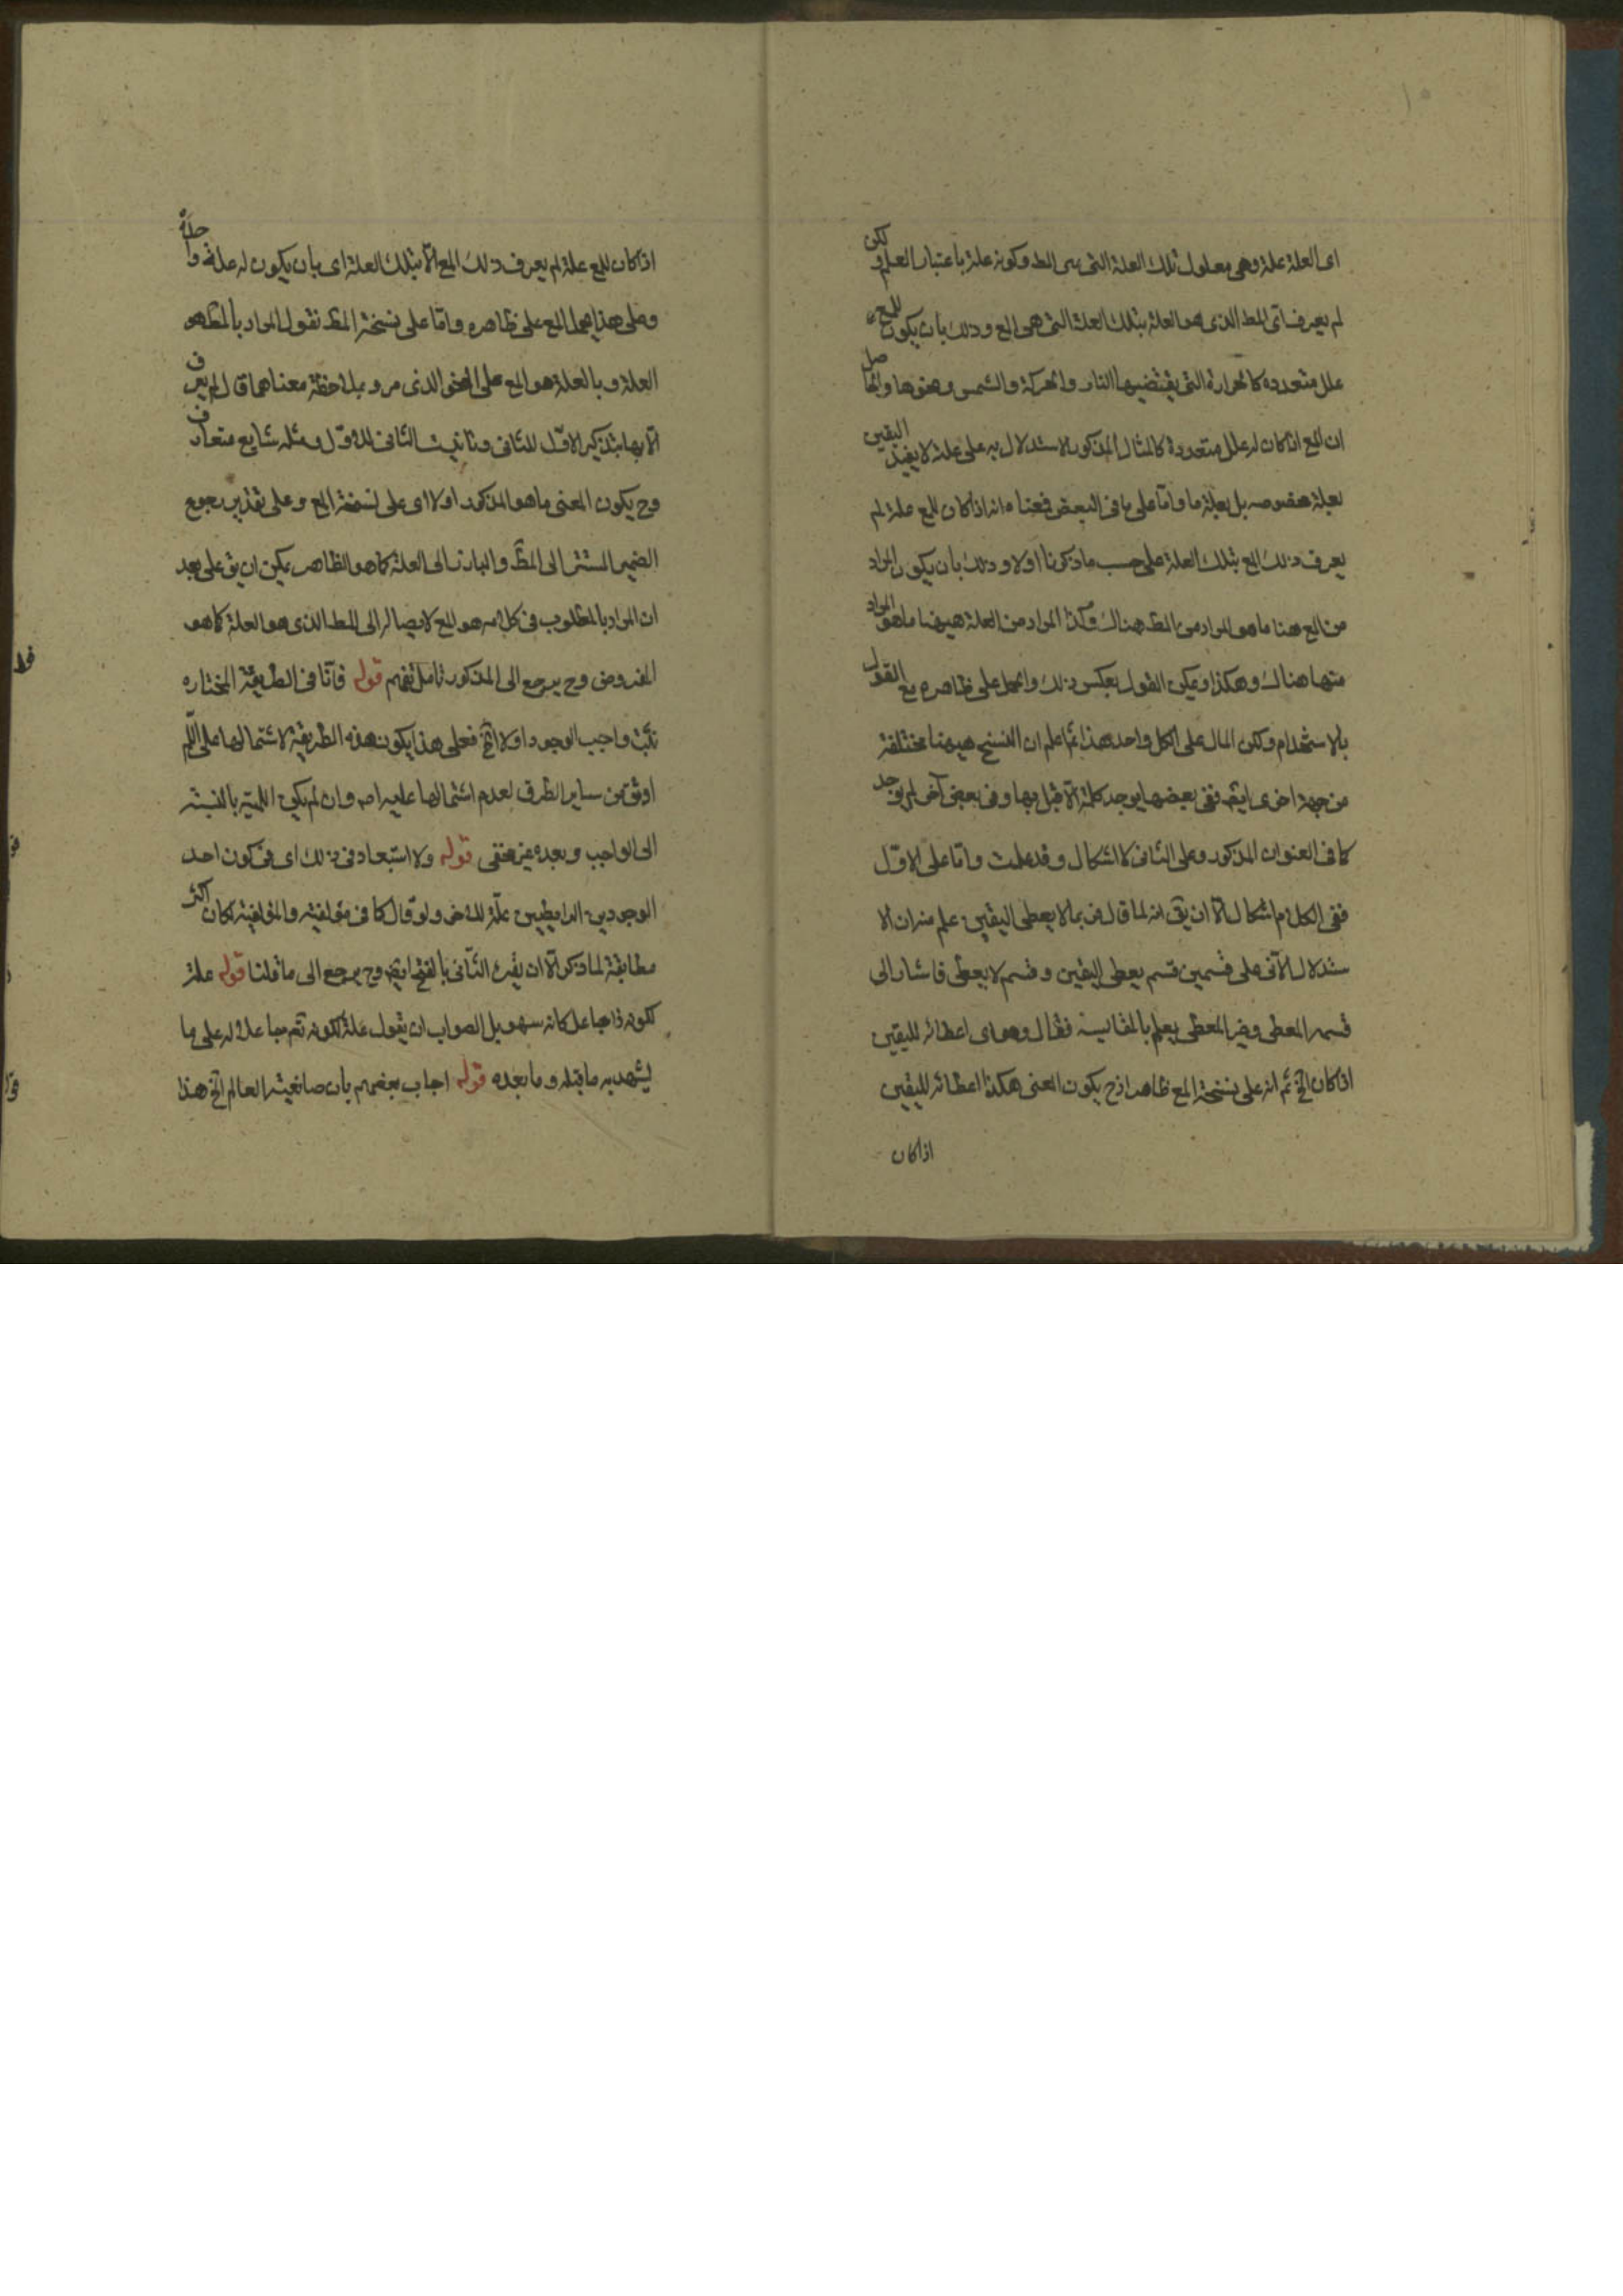 اى العلة علة وهى معلول تلك العلة التى هى المط وكونه علة باعتبار العلم ولكن
لم يعرف اى المط الذى هو العلة بتلك العلة التى هى المع وذلك بان يكون للمع
علل متعددة كالحرارة التى يقتضيها النار والحركة والشمس ونحوها والحاصل
ان المع اذا كان له علل متعددة كالمثال المذكور الاستدلال به على علة لا يفيد اليقين
بعلة مخصوصه بل بعلة ما واما على ما فى البعض فمعناه انه اذا كان للمع علة لم
يعرف ذلك المع بتلك العلة على حسب ما ذكرنا اولا وذلك بان يكون المراد
من المع هنا ما هو المراد من المط هناك وكذا المراد من العلة هيهنا ما هو المراد
منها هناك وهكذا ويمكن القول بعكس ذلك والحمل على ظاهره مع القول
بالاستخدام ولكن المال على الكل واحد هذا ثم اعلم ان النسخ هيهنا مختلفة
من جهة اخرى ايضا ففى بعضها يوجد كلمة الا قبل بها وفى بعض آخر لم يوجد
كما فى العنوان المذكور وعلى الثانى لا اشكال وقد علمت واما على الاول
ففى الكلام اشكال الا ان يق انه لما قال ربما لا يعطى اليقين علم منه ان الا
ستدلال الآنى على قسمين قسم يعطى اليقين وقسم لا يعطى فاشار الى
قسمه المعطى وغير المعطى يعلم بالمقايسة فقال وهو اى اعطائه لليقين
اذا كان الخ ثم انه على نسخة المع ظاهر اذ ح يكون المعنى هكذا اعطائه لليقين
اذا كان
اذا كان للمع علة لم يعرف ذلك المع الا بتلك العلة اى بان يكون له علة واحدة
وعلى هذا يحمل المع على ظاهره واما على نسخة المط نقول المراد بالمط هو
العلة وبالعلة هو المع على النحو الذى مر وبملاحظة معناهما قال لم يعرف
الا بها بتذكير الاول للثانى وتانيث الثانى للاول ومثله شايع متعارف
وح يكون المعنى ما هو المذكور اولا اى على نسخة المع وعلى تقدير رجوع
الضمير المستتر الى المط والبارز الى العلة كما هو الظاهر يمكن ان يق على بعد
ان المراد بالمطلوب فى كلامه هو المع لايصاله الى المط الذى هو العلة كما هو
المفروض وح يرجع الى المذكور تامل تفهم قوله فانا فى الطريقة المختاره
نثبت واجب الوجود اولا الخ فعلى هذا يكون هذه الطريقة لاشتمالها على اللم
اوثق من ساير الطرق لعدم اشتمالها عليه اصلا وان لم يكن اللمية بالنسبة
الى الواجب وبعده غير مخفى قوله ولا استبعاد فى ذلك اى فى كون احد
الوجودين الرابطيين علة للاخر ولو قال كما فى مؤلفيته والمؤلفية لكان اكثر
مطابقة لما ذكر الا ان يقرء الثانى بالفتح ايضا وح يرجع الى ما قلنا قوله علة
لكونه ذا جاعل كانه سهو بل الصواب ان يقول علة لكونه تعم جاعلا له على ما
يشهد به ما قبله وما بعده قوله اجاب بعضهم بان صانعيته العالم الخ هذا